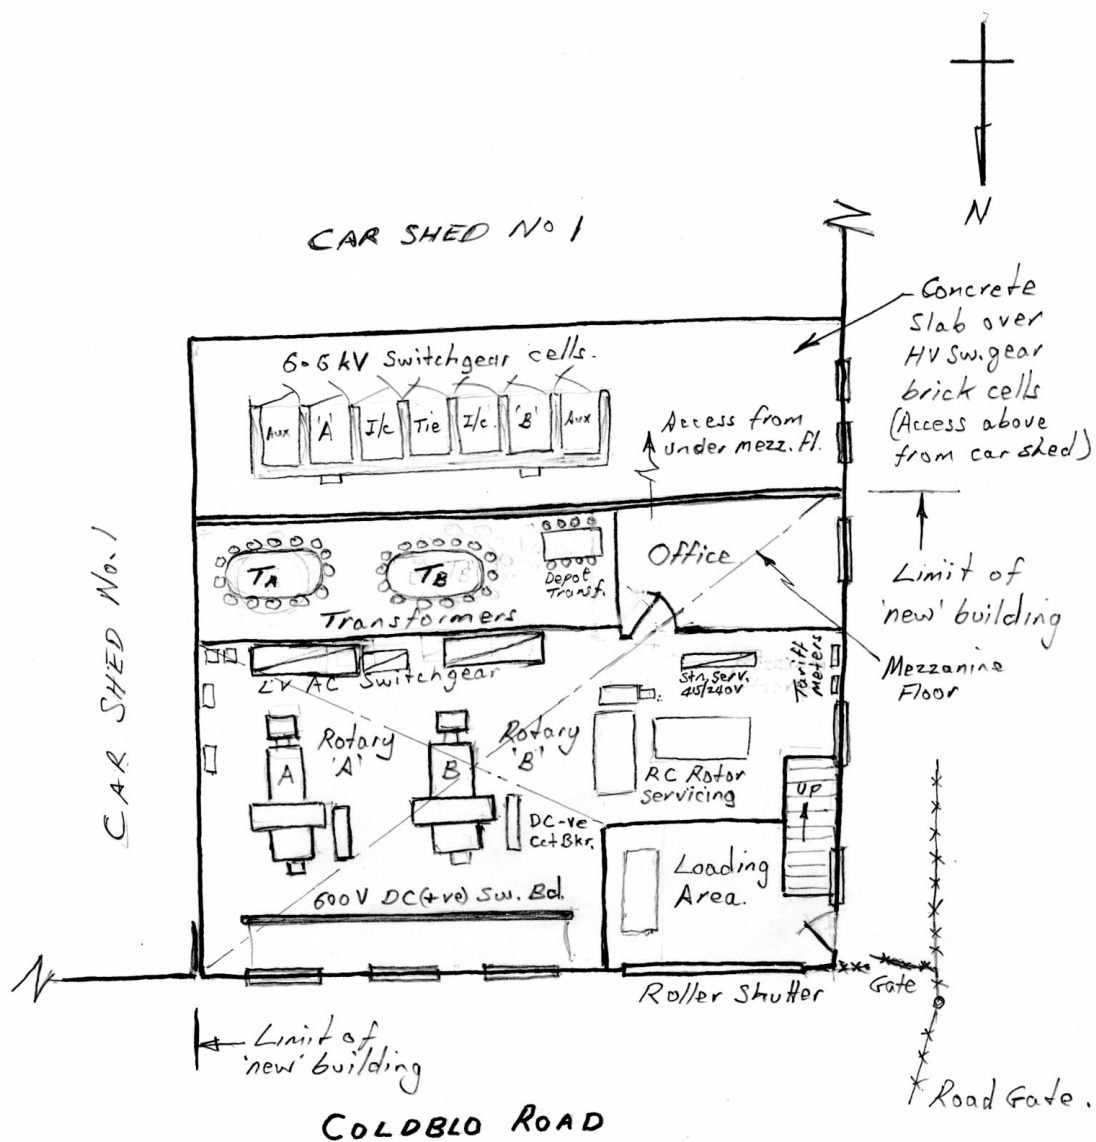 N
CAR SHED No 1
Concrete
Slab over
HV Sw.gear
brick cells
(Access above
from car shed)
6.6 kV Switchgear cells.
Aux 'A' I/c Tie I/c 'B' Aux
Access from
under mezz. fl.
CAR SHED No. 1
TA
TB
Depot
Transf.
Transformers
Office
Limit of
'new' building
Mezzanine
Floor
LV AC Switchgear
Stn. Serv.
415/240V
Tariff
Meters
Rotary
'A'
A
Rotary
'B'
B
RC Rotor
Servicing
UP
DC-ve
Cct Bkr.
Loading
Area.
600V DC(+ve) Sw. Bd.
Roller Shutter
Gate
Limit of
'new' building
Road Gate.
COLDBLO ROAD